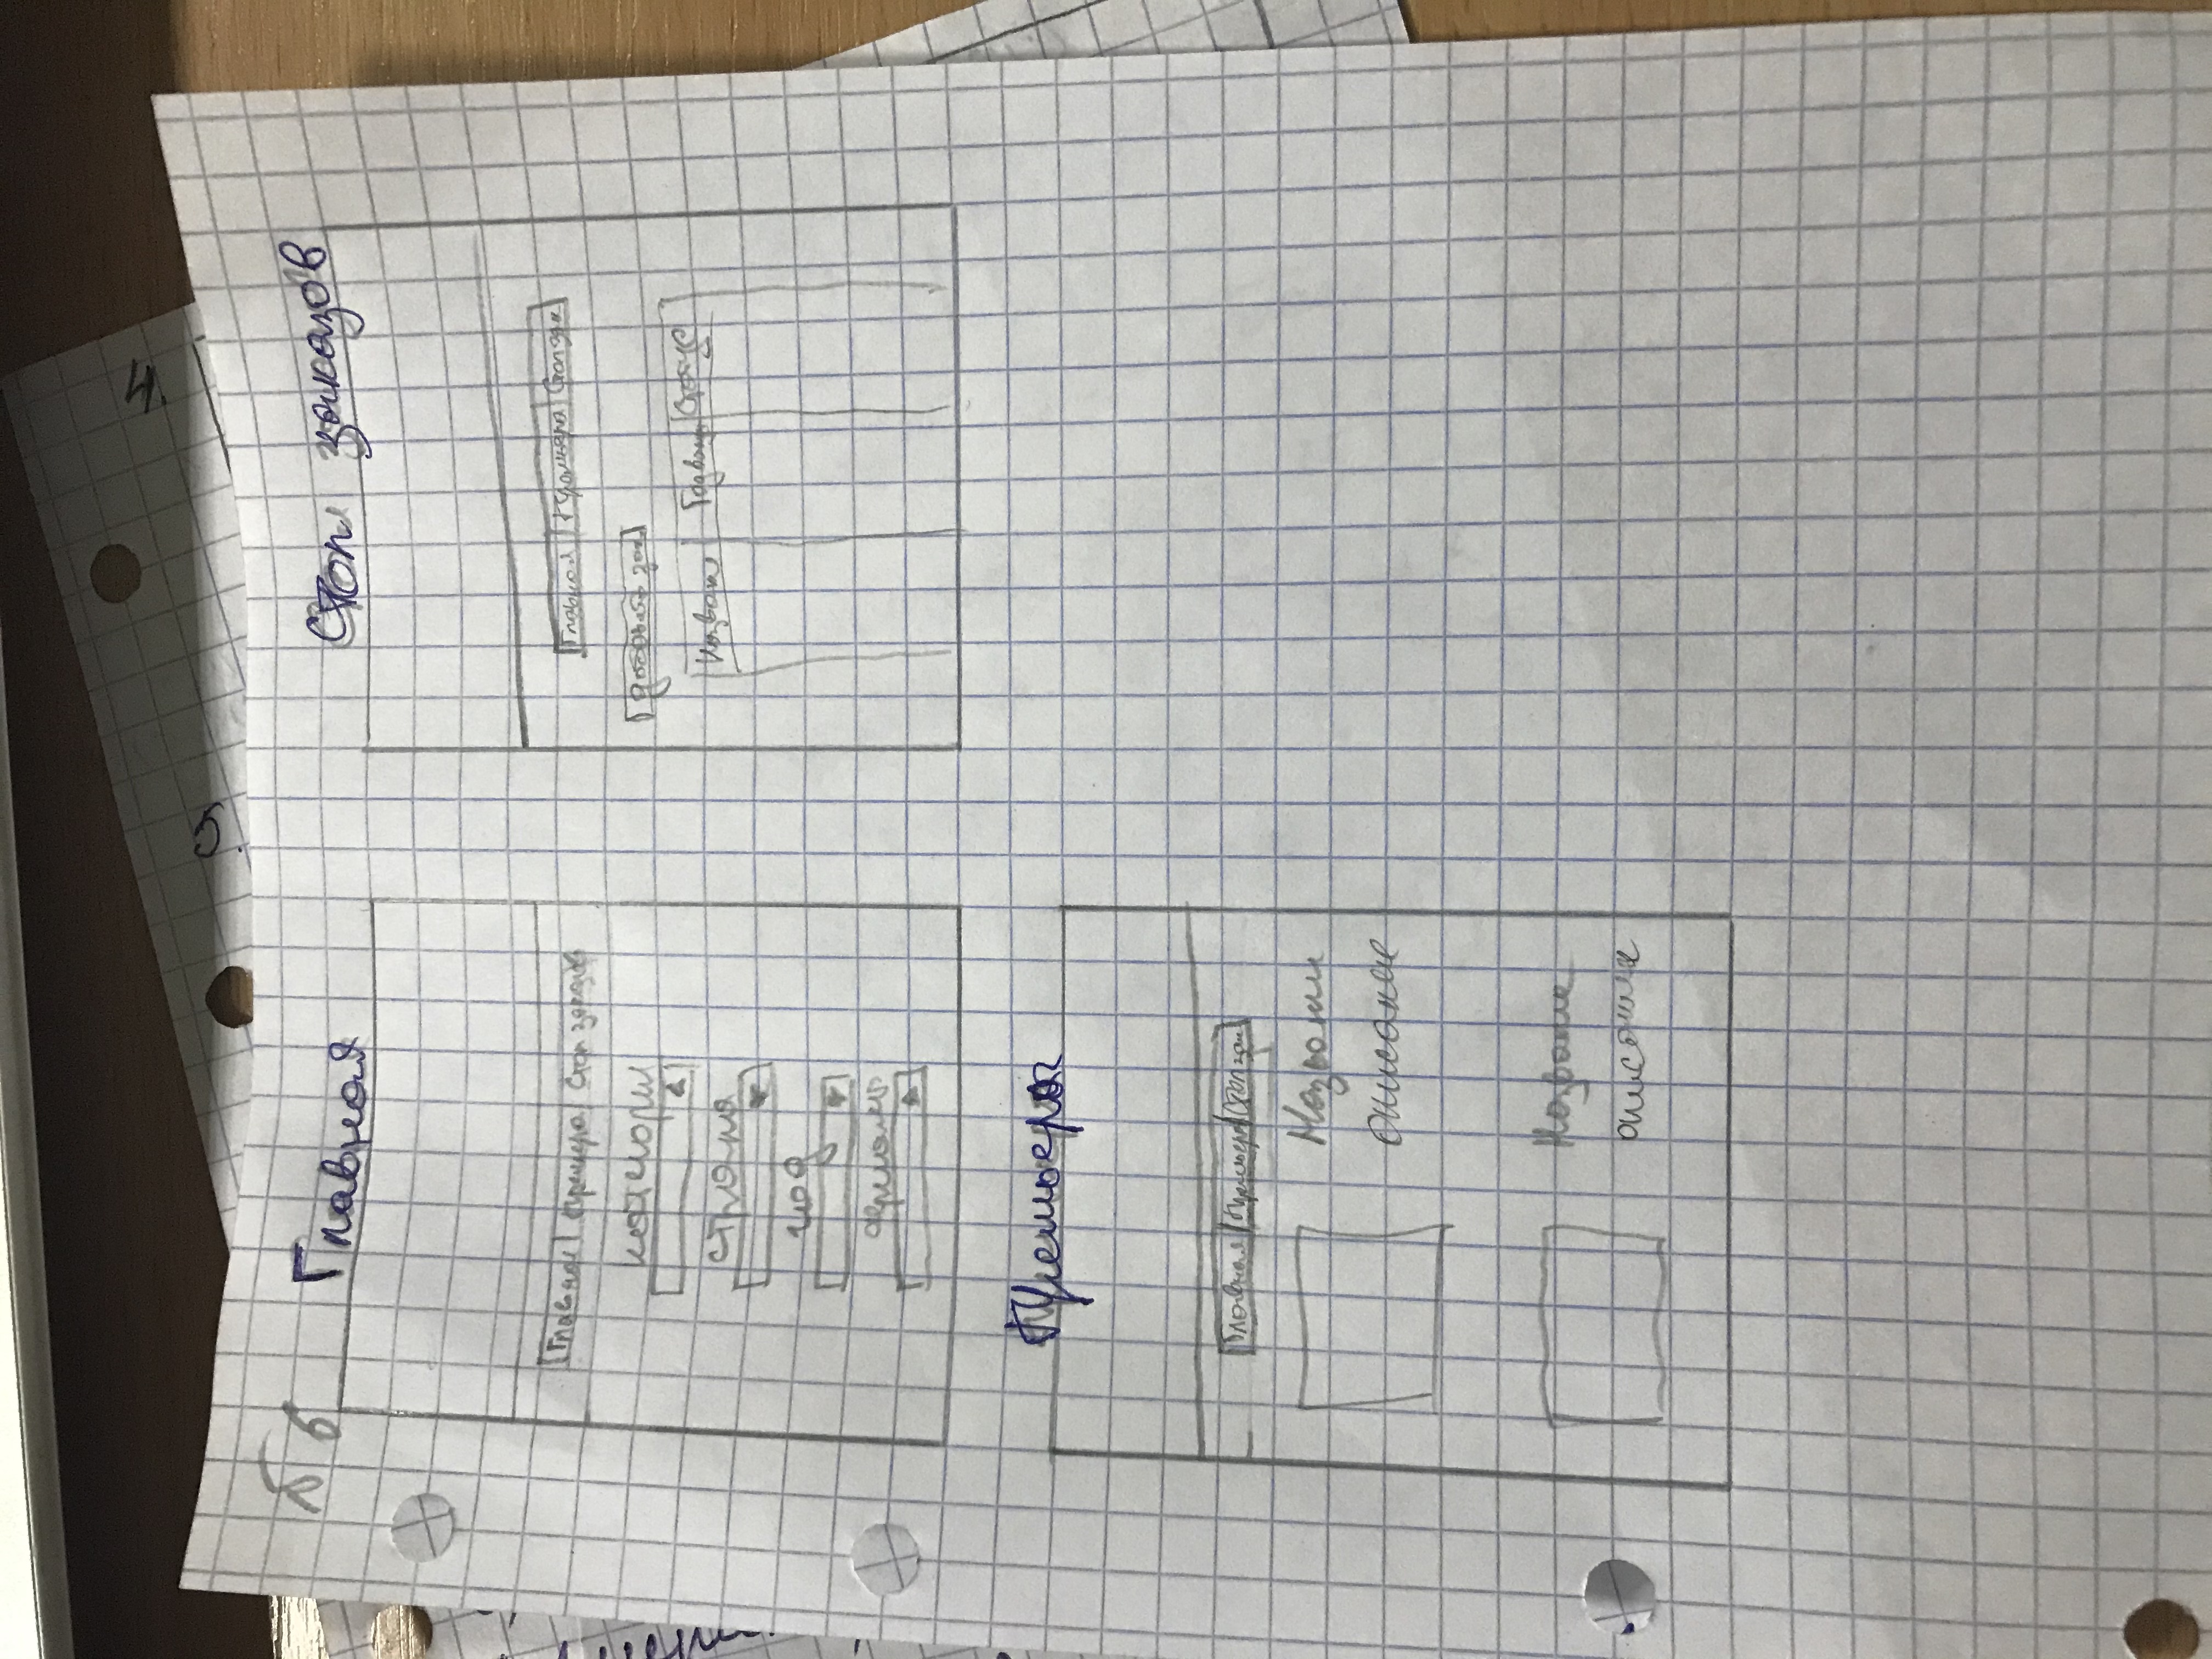 Б 6
Главная
Главная Премьера Стоп заказов
категории
страна
год
формат
Стол заказов
Главная Премьера Стол зак
добавить зак
Название Год вып Статус
Премьера
Главная Премьера Стол зак
Название
описание
Название
описание